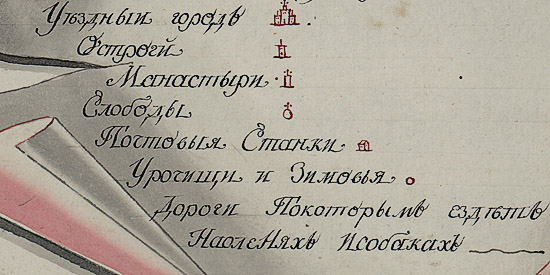 Уѣздныи городъ
Остроги
Манастыри
Слободы
Почтовыя Станки
Урочищи и Зимовья
Дороги Покоторымъ ездятъ
Наоленяхъ исобакахъ